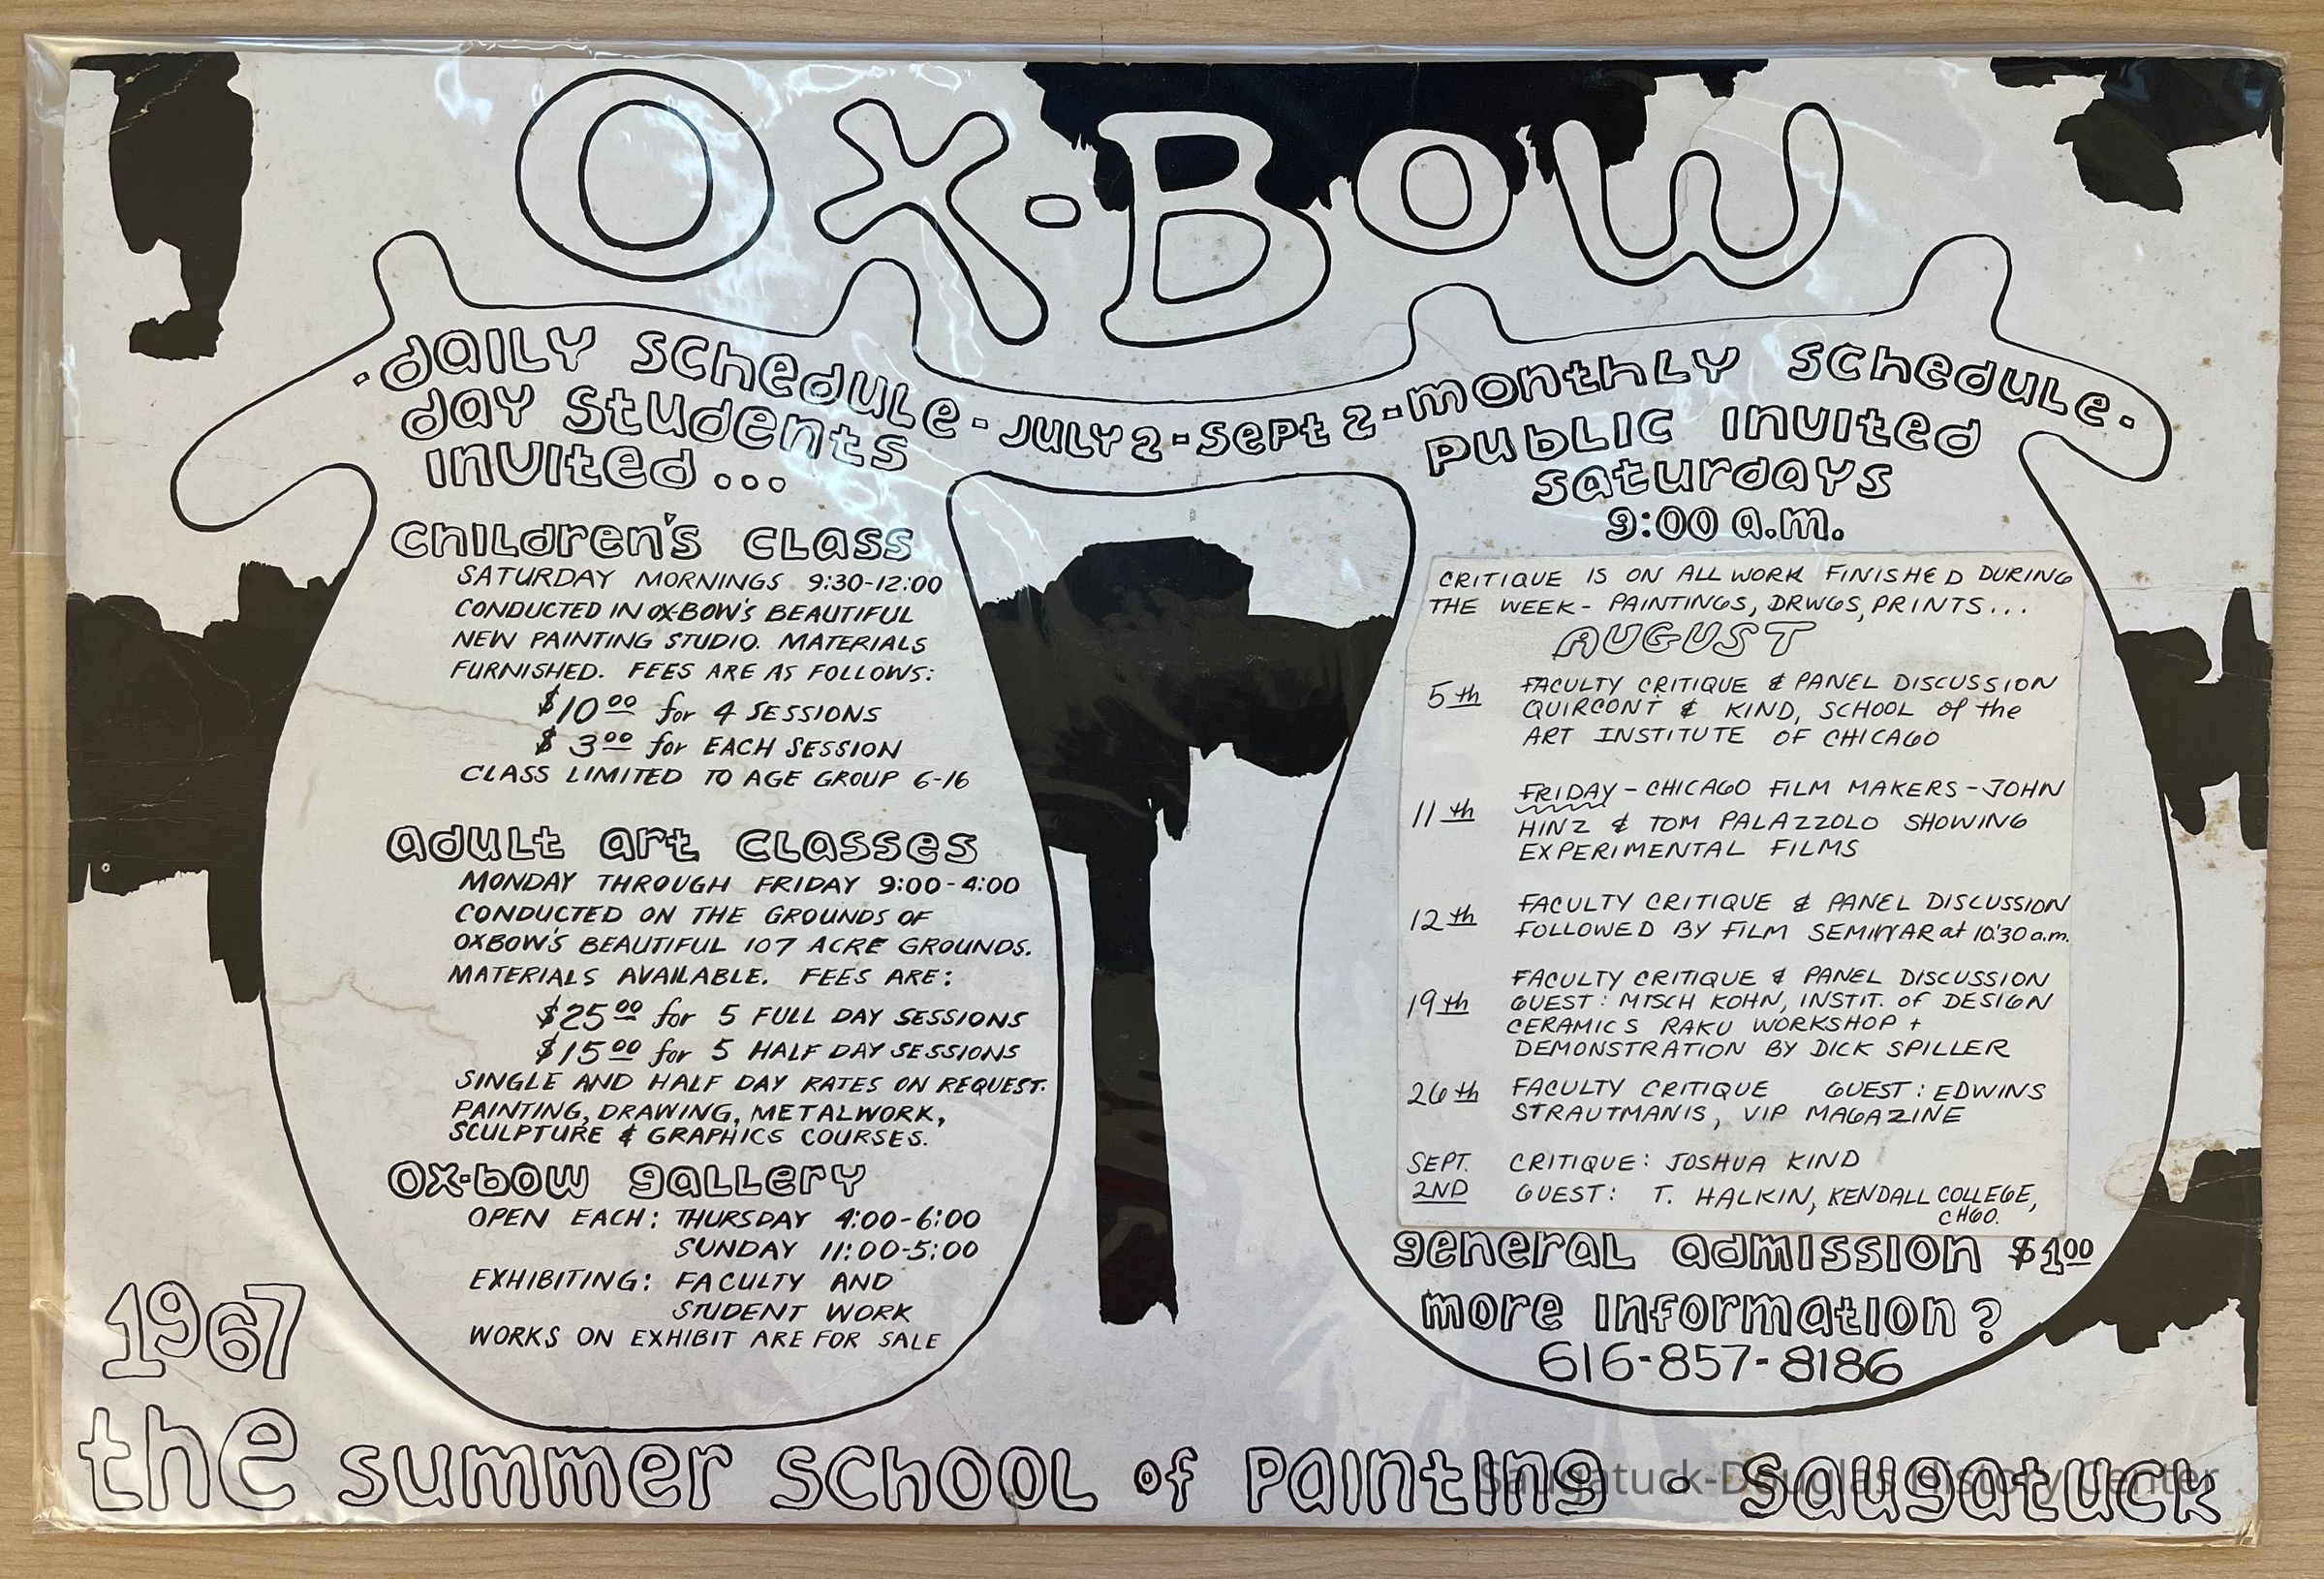 OX-BOW
·daily schedule·july 2·sept 2·monthly schedule·
day students
invited...
children's class
SATURDAY MORNINGS 9:30-12:00
CONDUCTED IN OX-BOW'S BEAUTIFUL
NEW PAINTING STUDIO. MATERIALS
FURNISHED. FEES ARE AS FOLLOWS:
$10 00 for 4 SESSIONS
$ 3 00 for EACH SESSION
CLASS LIMITED TO AGE GROUP 6-16
adult art classes
MONDAY THROUGH FRIDAY 9:00-4:00
CONDUCTED ON THE GROUNDS OF
OXBOW'S BEAUTIFUL 107 ACRE GROUNDS.
MATERIALS AVAILABLE. FEES ARE:
$25 00 for 5 FULL DAY SESSIONS
$15 00 for 5 HALF DAY SESSIONS
SINGLE AND HALF DAY RATES ON REQUEST.
PAINTING, DRAWING, METALWORK,
SCULPTURE & GRAPHICS COURSES.
ox-bow gallery
OPEN EACH: THURSDAY 4:00-6:00
SUNDAY 11:00-5:00
EXHIBITING: FACULTY AND
STUDENT WORK
WORKS ON EXHIBIT ARE FOR SALE
public invited
saturdays
9:00 a.m.
CRITIQUE IS ON ALL WORK FINISHED DURING
THE WEEK- PAINTINGS, DRWGS, PRINTS...
AUGUST
5th FACULTY CRITIQUE & PANEL DISCUSSION
QUIRCONT & KIND, SCHOOL of the
ART INSTITUTE OF CHICAGO
11th FRIDAY - CHICAGO FILM MAKERS - JOHN
HINZ & TOM PALAZZOLO SHOWING
EXPERIMENTAL FILMS
12th FACULTY CRITIQUE & PANEL DISCUSSION
FOLLOWED BY FILM SEMINAR at 10:30 a.m.
19th FACULTY CRITIQUE & PANEL DISCUSSION
GUEST: MISCH KOHN, INSTIT. of DESIGN
CERAMICS RAKU WORKSHOP +
DEMONSTRATION BY DICK SPILLER
26th FACULTY CRITIQUE GUEST: EDWINS
STRAUTMANIS, VIP MAGAZINE
SEPT. 2ND CRITIQUE: JOSHUA KIND
GUEST: T. HALKIN, KENDALL COLLEGE,
CHGO.
general admission $1 00
more information?
616-857-8186
1967
the summer school of painting · saugatuck
Saugatuck-Douglas History Center